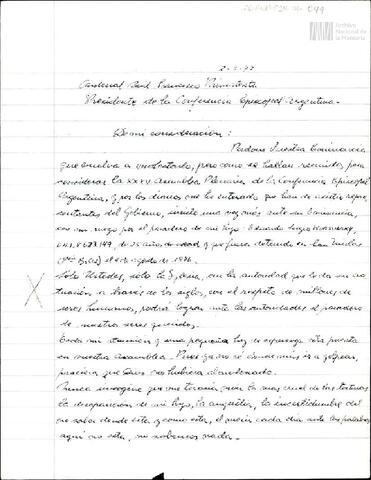 Archivo
Nacional de
la Memoria
Cardenal Raúl Francisco Primatesta
Presidente de la Conferencia Episcopal Argentina.
De mi consideración:
Perdone Vuestra Eminencia
que vuelva a molestarlo, pero como se hallan reunidos, para
considerar la XXXV Asamblea Plenaria de la Conferencia Episcopal
Argentina, y por los diarios me he enterado que han de recibir repre-
sentantes del Gobierno, insisto una vez más ante su Eminencia,
con mi ruego por el paradero de mi hijo Eduardo Sergio
de 25 años de edad y que fuera detenido en San Nicolás
(Pcia. Bs. As.) el de agosto de 1976.
Solo Ustedes, solo la Iglesia, con la autoridad que le da su ac-
tuación a través de los siglos, con el respeto de millones de
seres humanos, podrá lograr ante las autoridades el paradero
de nuestros seres queridos.
Toda mi ilusión y una pequeña luz de esperanza está puesta
en vuestra Asamblea. Pues ya no sé donde más ir a golpear,
pareciera que Dios nos hubiera abandonado.
Nunca imaginé que me tocaría vivir la más cruel de las torturas
la desaparición de mi hijo, la angustia, la incertidumbre del
no saber donde está y como está, el morir cada día ante las palabras
aquí no está, no sabemos nada.